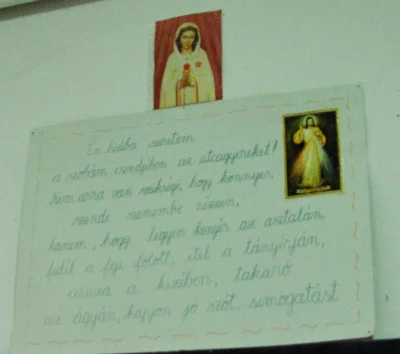 Én hiába szeretem
a szobám csendjében az utcagyereket!
Nem arra van szüksége, hogy könnyes,
szende szemembe nézzen,
hanem, hogy legyen kenyér az asztalán,
fedél a feje fölött, étel a tányérján,
ceruza a kezében, takaró
az ágyán, kapjon jó szót, simogatást